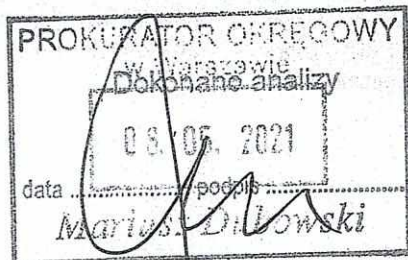 PROKURATOR OKRĘGOWY
w Warszawie
Dokonano analizy
06. 2021
data ........ podpis ........
Mariusz Dubowski